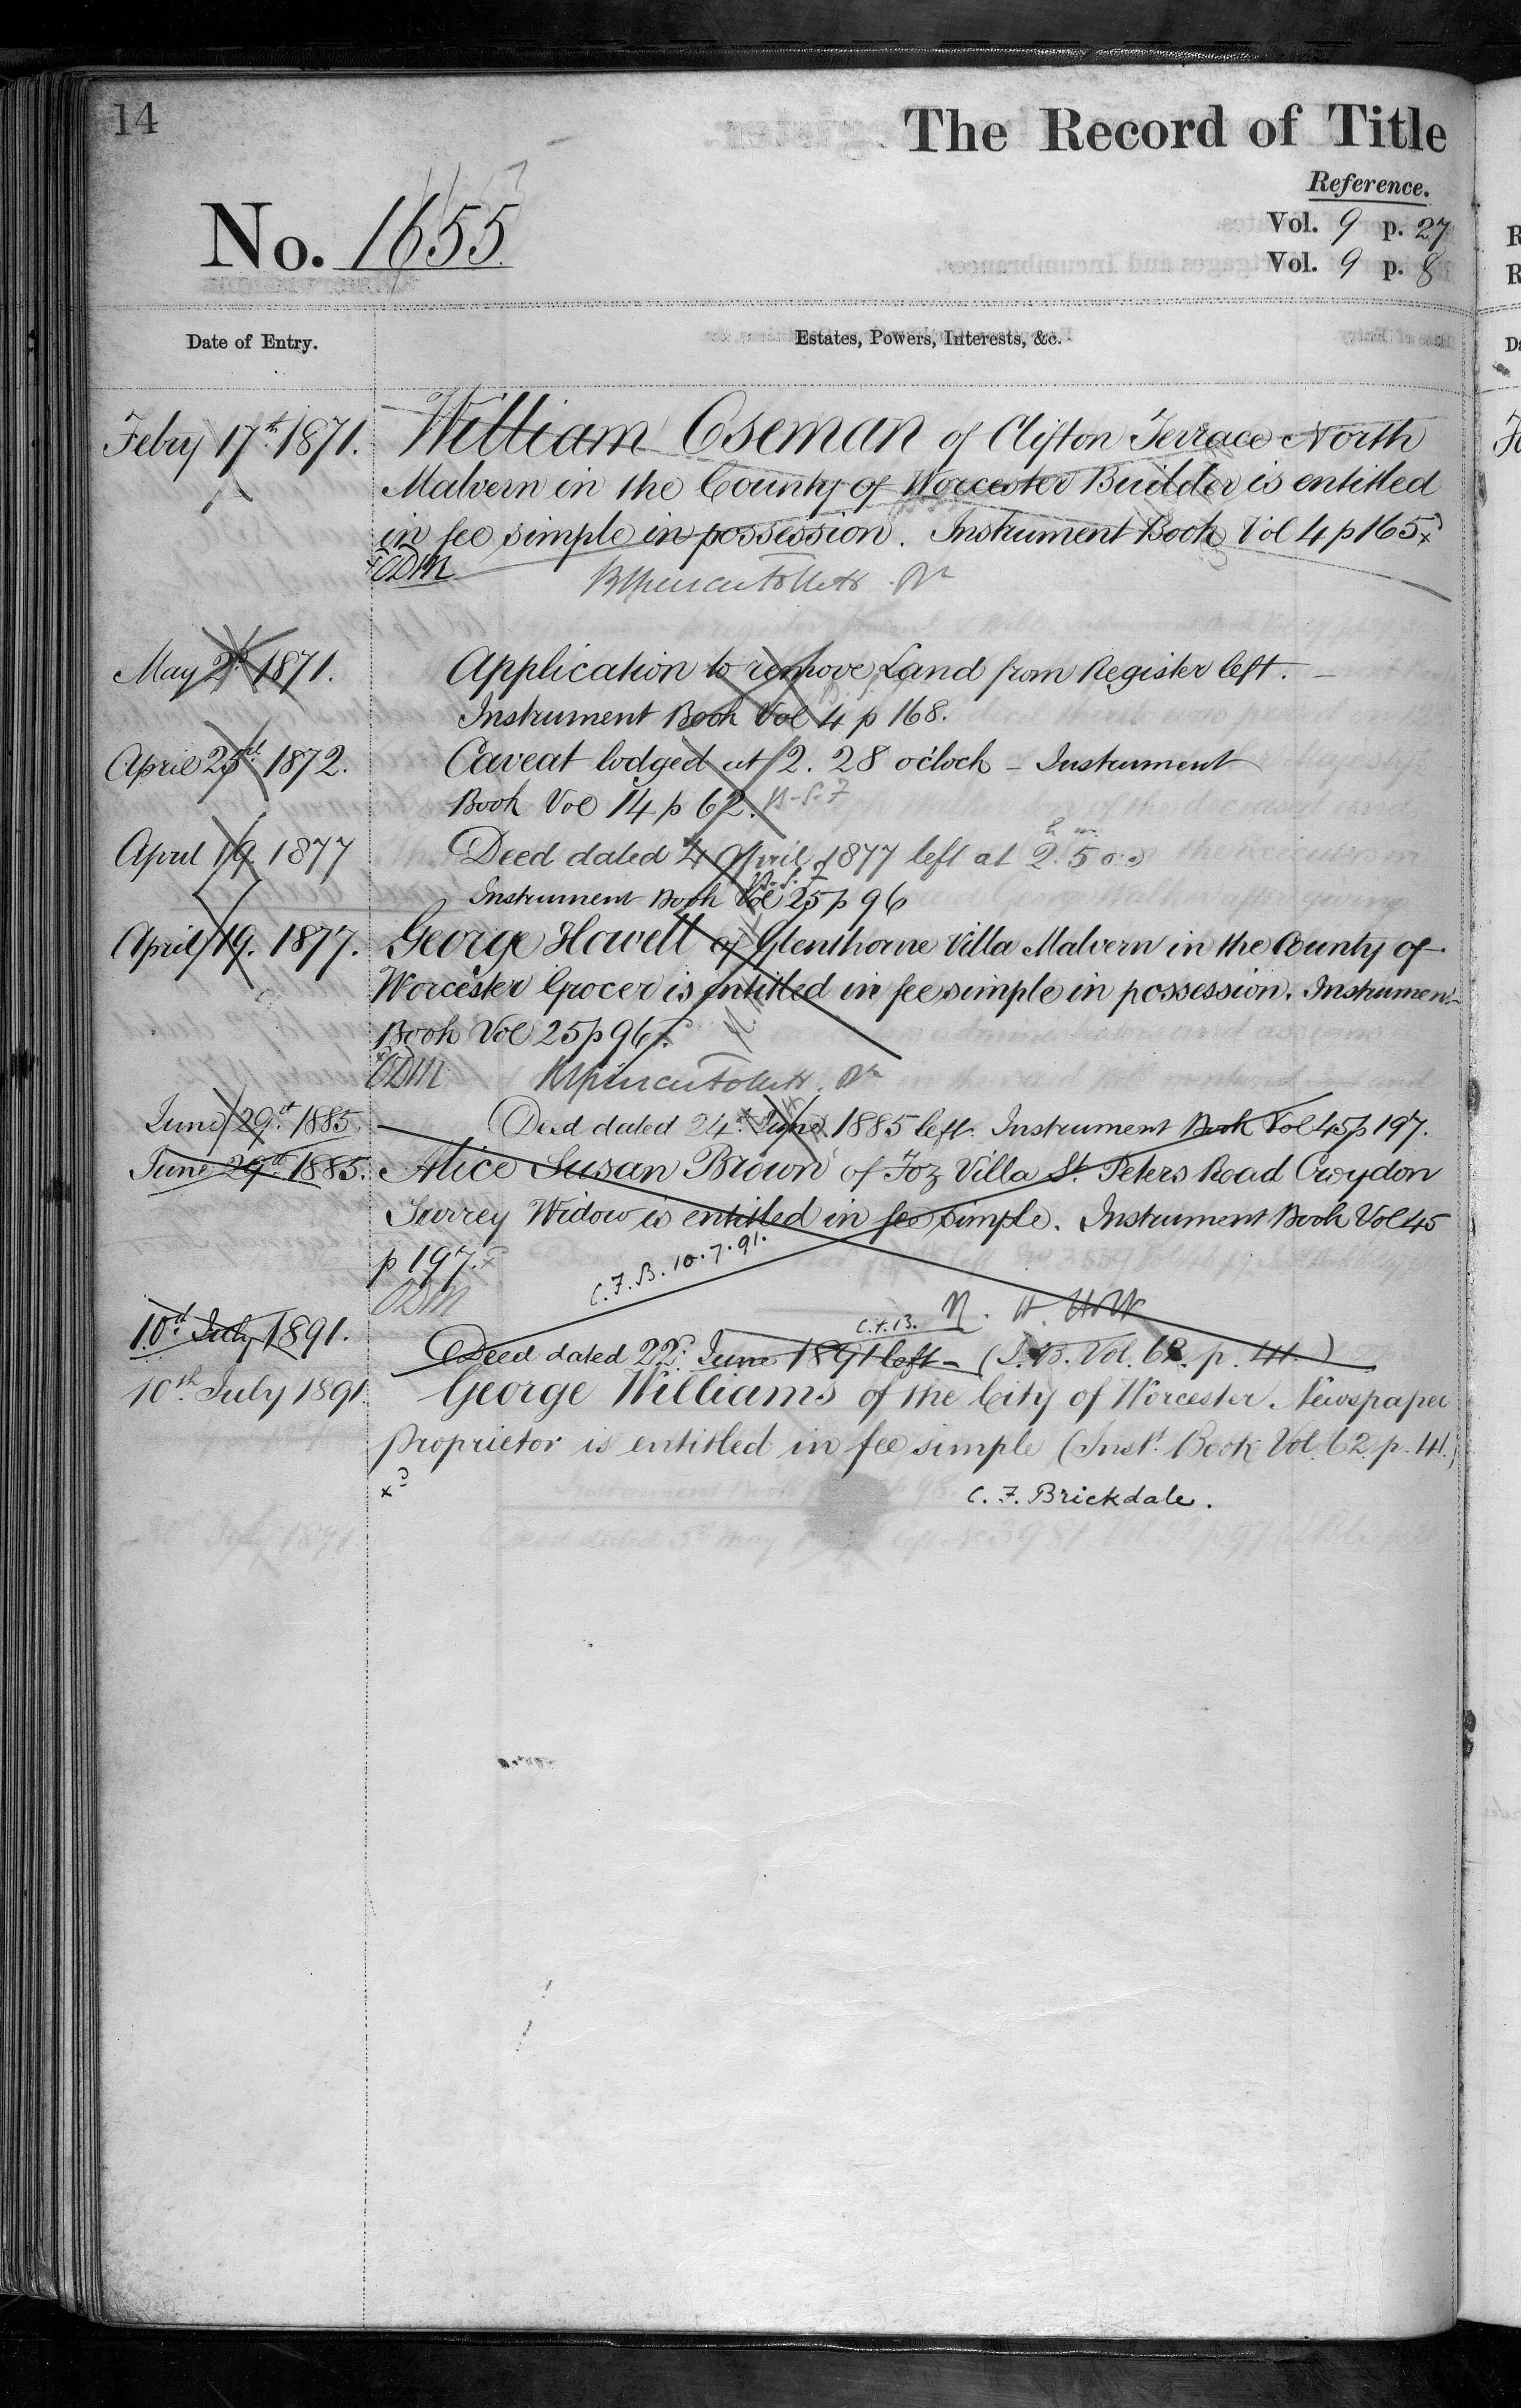 14
The Record of Title
Reference.
No. 1655
Vol. 9 p. 27
Vol. 9 p. 8
Date of Entry.
Estates, Powers, Interests, &c.
Febry 17th 1871. William Oseman of Clifton Terrace North
Malvern in the County of Worcester Builder is entitled
in fee simple in possession. Instrument Book Vol 4 p 165
ODM
May 2d 1871. Application to remove Land from Register left.
Instrument Book Vol 4 p 168.
April 25th 1872. Caveat lodged at 12. 28 o'clock - Instrument
Book Vol 14 p 62.
April 19. 1877 Deed dated 4 April 1877 left at 2h. 5m
Instrument Book Vol 25 p 96
April 19. 1877. George Howell of Glenthorne Villa Malvern in the County of
Worcester Grocer is entitled in fee simple in possession. Instrument
Book Vol 25 p 96
ODM
June 29th 1885. Deed dated 24th June 1885 left. Instrument Book Vol 45 p 197.
June 29th 1885. Alice Susan Brown of Foz Villa St. Peters Road Croydon
Surrey Widow is entitled in fee simple. Instrument Book Vol 45
p 197.
C. F. B. 10.7.91.
ODM
10th July 1891. Deed dated 22d. June 1891 left - (I.B. Vol. 62. p. 41.)
10th July 1891 George Williams of the City of Worcester. Newspaper
Proprietor is entitled in fee simple (Inst. Book Vol. 62. p. 41.)
C. F. Brickdale.